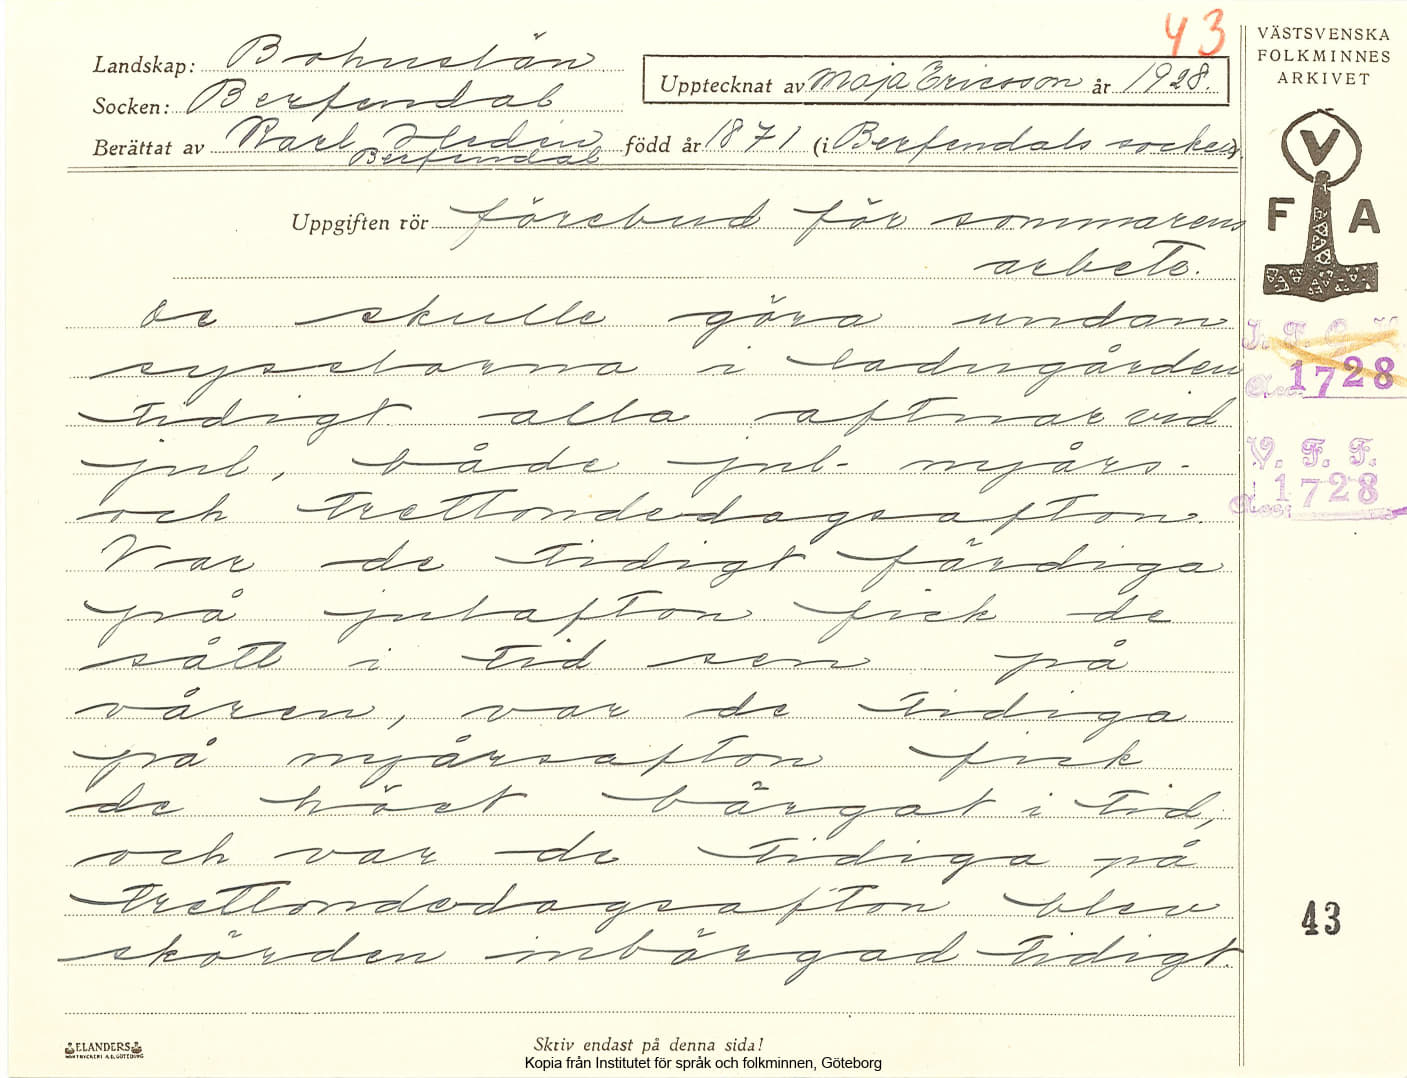 43
VÄSTSVENSKA
FOLKMINNES
ARKIVET
Landskap: Bohuslän
Upptecknat av Maja Ericsson år 1928.
Socken: Berfendal
Berättat av Karl Hedin född år 1871 (i Berfendals socken).
Berfendal
V
F A
Uppgiften rör förebud för sommarens
arbete.
De skulle göra undan
sysslorna i ladugården
tidigt alla aftnar vid
jul, både jul- nyårs-
och trettondedagsafton.
Var de tidigt färdiga
på julafton fick de
sått i tid sen på
våren, var de tidiga
på nyårsafton fick
de höet bärgat i tid,
och var de tidiga på
trettondedagsafton blev
skörden inbärgad tidigt.
I. F. G. H.
Acc. 1728
V. F. F.
Acc. 1728
43
ELANDERS
BOKTRYCKERI A.B. GÖTEBORG
Skriv endast på denna sida!
Kopia från Institutet för språk och folkminnen, Göteborg